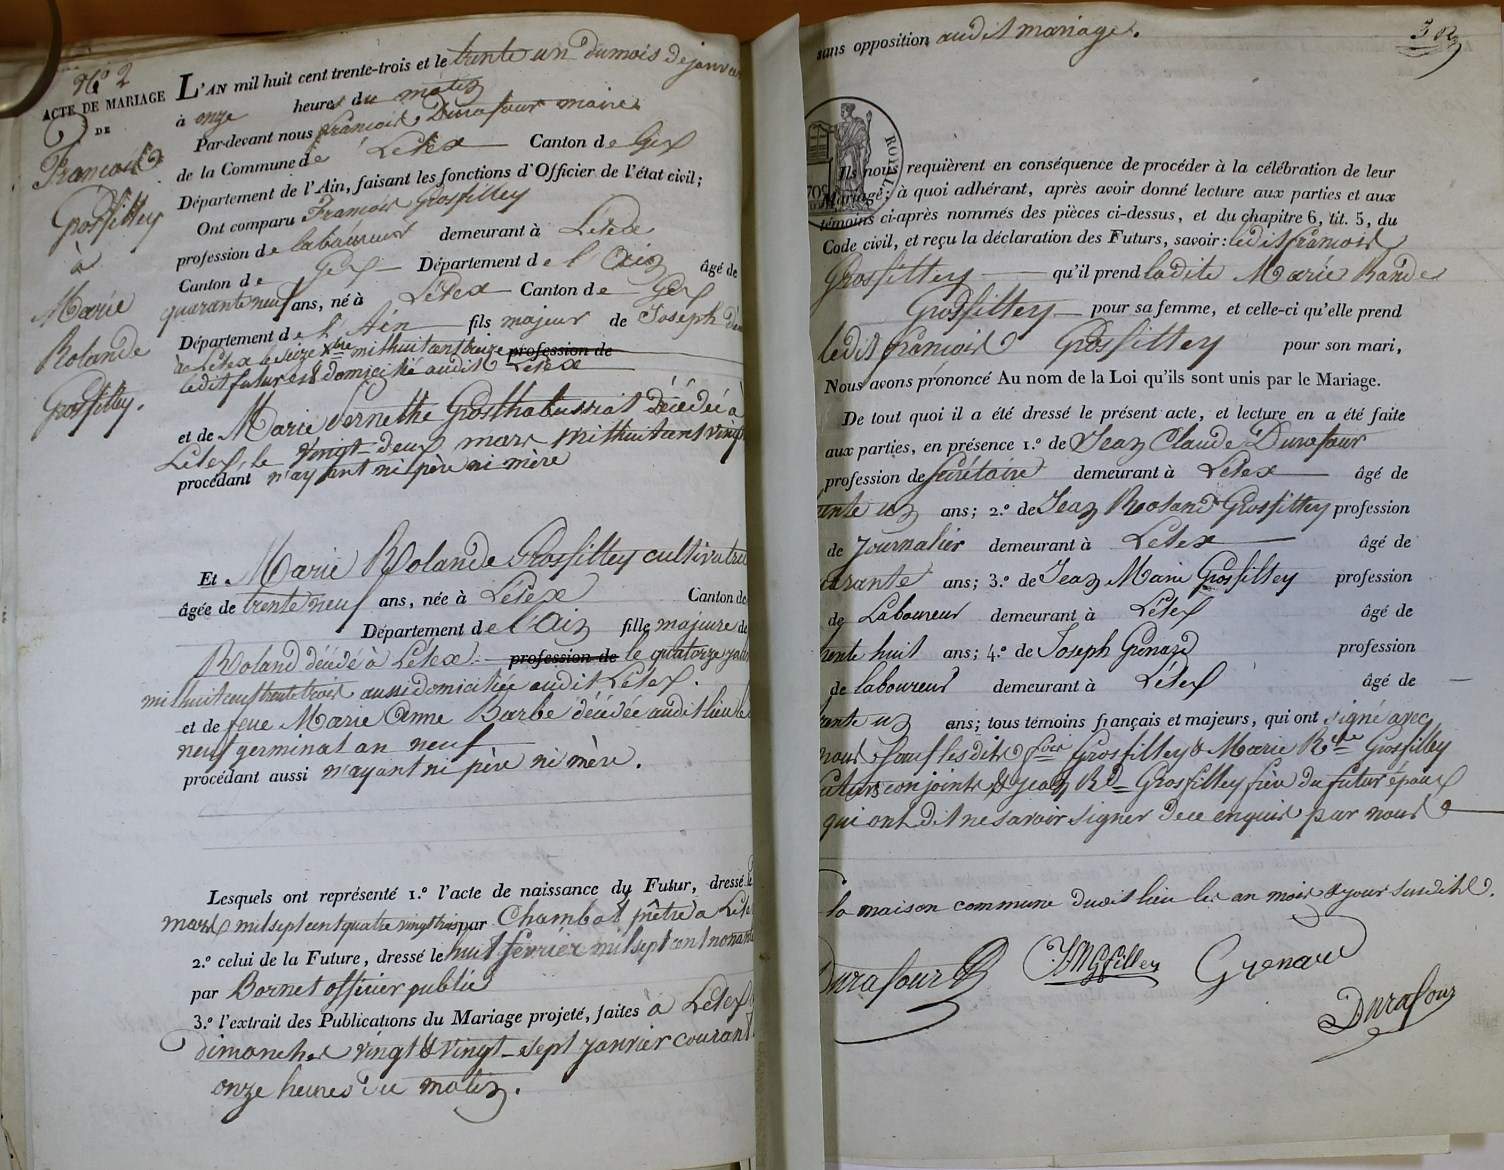 N.º 2
ACTE DE MARIAGE
DE
François
Grosfilley
à
Marie
Rolande
Grosfilley.
L'AN mil huit cent trente-trois et le trente un du mois de janvier
à onze heures du matin
Par-devant nous françois Durafour maire
de la Commune de Lélex Canton de Gex
Département de l'Ain, faisant les fonctions d'Officier de l'état civil;
Ont comparu François Grosfilley
profession de laboureur demeurant à Lélex
Canton de Gex Département de l'Ain âgé de
quarante neuf ans, né à Lélex Canton de Gex
Département de l'Ain fils majeur de Joseph
à Lélex le seize Xbre mil huit cent treize profession de
ledit futur est domicilié audit Lélex
et de Marie Pernethe Grosthabussiat Décédée à
Lélex, le vingt-deux mars mil huit cent vingt
procédant n'ayant ni père ni mère
Et Marie Rolande Grosfilley cultivatrice
âgée de trente neuf ans, née à Lélex Canton de
Département de l'Ain fille majeure de
Roland décédé à Lélex profession de le quatorze
mil huit cent trente trois aussi domiciliée audit Lélex.
et de feue Marie Anne Barbe décédée audit lieu le
neuf germinal an neuf
procédant aussi n'ayant ni père ni mère.
Lesquels ont représenté 1.º l'acte de naissance du Futur, dressé le
mars mil sept cent quatre vingt trois par Chambat prêtre à Lélex
2.º celui de la Future, dressé le huit février mil sept cent nonante
par Bornet officier public
3.º l'extrait des Publications du Mariage projeté, faites à Lélex
dimanches vingt & vingt-sept janvier courant
onze heures du matin.
sans opposition audit mariage.
ROYAL
Ils nous requièrent en conséquence de procéder à la célébration de leur
Mariage; à quoi adhérant, après avoir donné lecture aux parties et aux
témoins ci-après nommés des pièces ci-dessus, et du chapitre 6, tit. 5, du
Code civil, et reçu la déclaration des Futurs, savoir: ledit françois
Grosfilley qu'il prend ladite Marie Rande
Grosfilley pour sa femme, et celle-ci qu'elle prend
ledit françois Grosfilley pour son mari,
Nous avons prononcé Au nom de la Loi qu'ils sont unis par le Mariage.
De tout quoi il a été dressé le présent acte, et lecture en a été faite
aux parties, en présence 1.º de Jean Claude Durafour
profession de secrétaire demeurant à Lélex âgé de
trente un ans; 2.º de Jean Roland Grosfilley profession
de Journalier demeurant à Lélex âgé de
quarante ans; 3.º de Jean Marie Grosfilley profession
de Laboureur demeurant à Lélex âgé de
trente huit ans; 4.º de Joseph Grenard profession
de laboureur demeurant à Lélex âgé de
trente un ans; tous témoins français et majeurs, qui ont signé avec
nous sauf lesdits fcois Grosfilley & Marie Rde Grosfilley
futurs conjoints & Jean Rd Grosfilley frère du futur époux
qui ont dit ne savoir signer de ce enquis par nous
la maison commune dudit lieu les an mois & jour susdits.
Durafour JMGfilley Grenard
Durafour